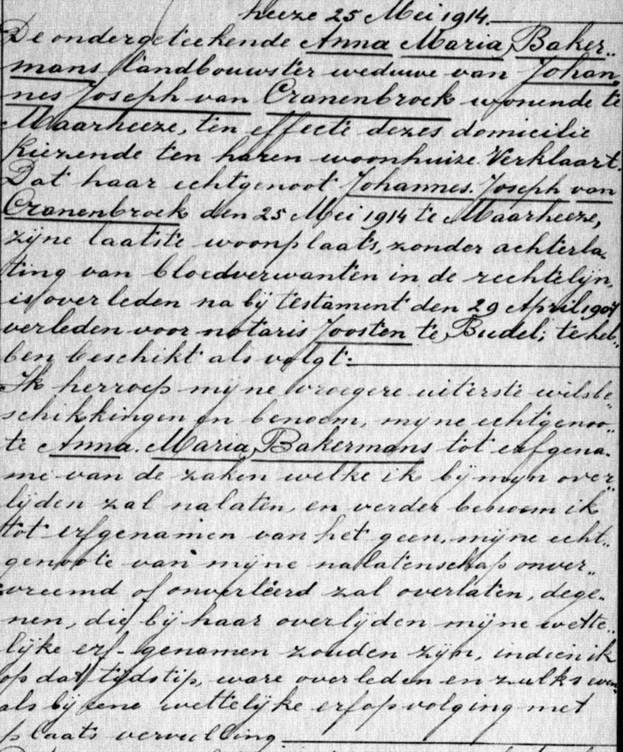 heeze 25 Mei 1914.
De ondergeteekende Anna Maria Baker„
mans landbouwster weduwe van Johan„
nes Joseph van Cranenbroek wonende te
Maarheeze, ten effecte dezes domicilie
kiezende ten haren woonhuize. Verklaart.
Dat haar echtgenoot Johannes. Joseph van
Cranenbroek den 25 Mei 1914 te Maarheeze,
zijne laatste woonplaats, zonder achterla„
ting van bloedverwanten in de rechte lijn,
is overleden na bij testament den 29 April 1907
verleden voor notaris Joosten te Budel; te heb„
ben beschikt als volgt:
Ik herroep mijne vroegere uiterste wilsbe„
schikkingen en benoem, mijne echtgenoo„
te Anna. Maria Bakermans tot erfgena„
me van de zaken welke ik bij mijn over„
lijden zal nalaten, en verder benoem ik
tot erfgenamen van het geen, mijne echt„
genoote van mijne nalatenschap onver„
vreemd of onverteerd zal overlaten, dege„
nen, die bij haar overlijden mijne wette„
lijke erf-genamen zouden zijn, indien ik
op dat tijdstip, ware overleden en zulks even„
als bij eene wettelijke erfopvolging met
plaats vervulling